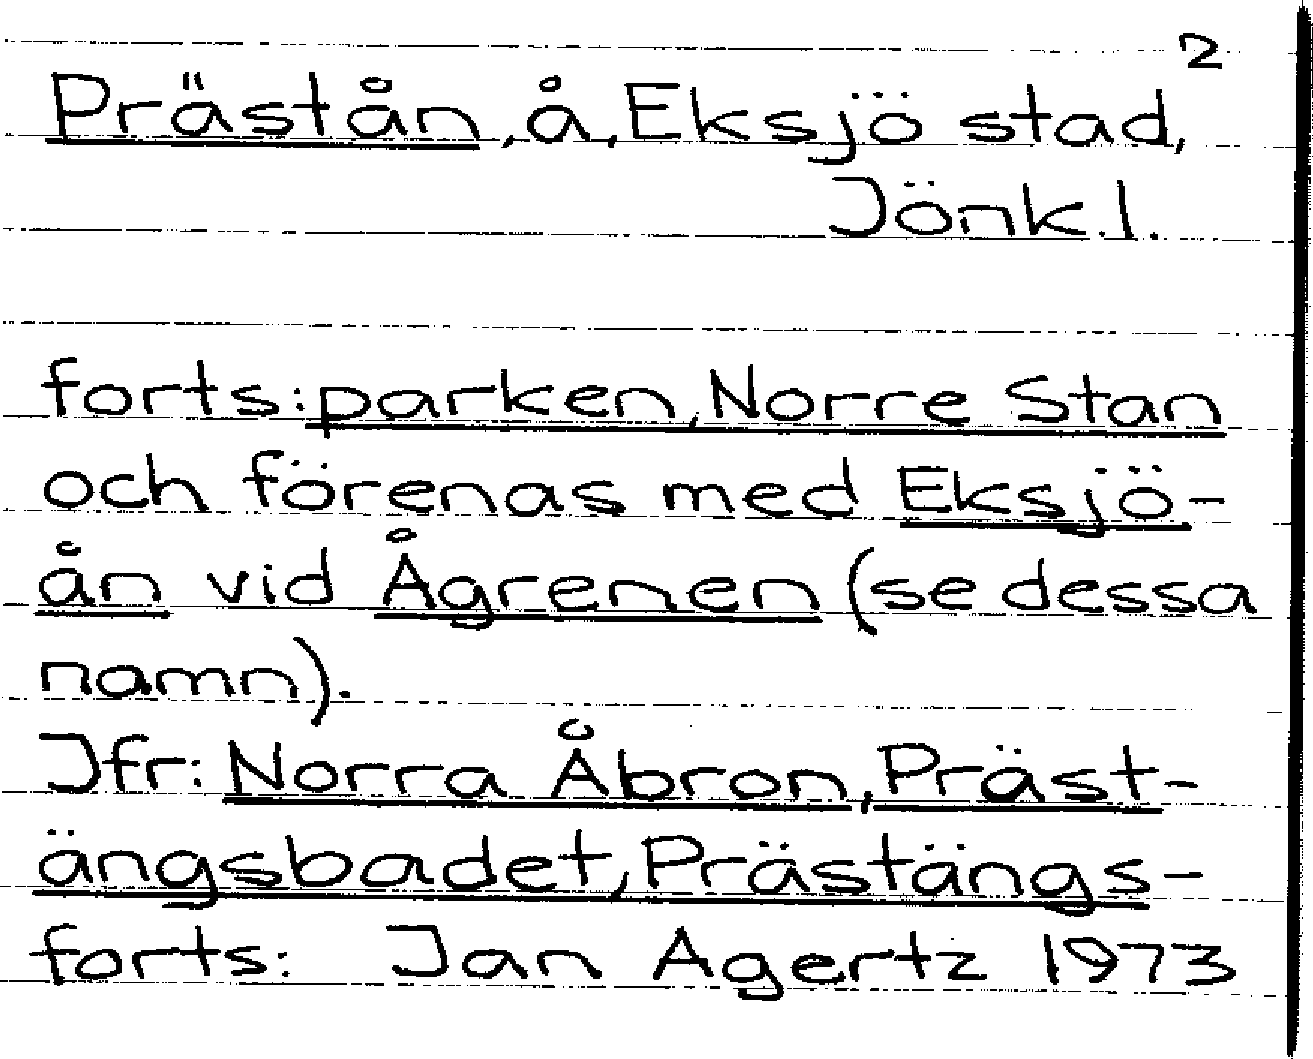 2
Prästån, å, Eksjö stad,
Jönk.l.
forts: parken, Norre Stan
och förenas med Eksjö-
ån vid Ågrenen (se dessa
namn).
Jfr: Norra Åbron, Präst-
ängsbadet, Prästängs-
forts: Jan Agertz 1973